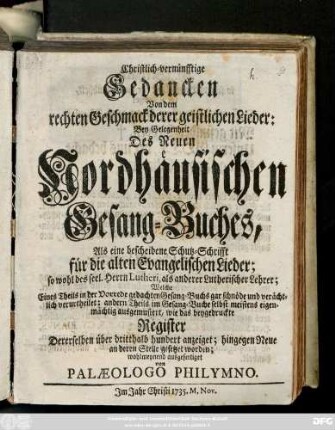 Christlich-vernünfftige
Gedancken
Von dem
rechten Geschmack derer geistlichen Lieder;
Bey Gelegenheit
Des Neuen
Nordhäusischen
Gesang-Buches,
Als eine bescheidene Schutz-Schrifft
für die alten Evangelischen Lieder;
so wohl des seel. Herrn Lutheri, als anderer Lutherischer Lehrer;
Welche
Eines Theils in der Vorrede gedachten Gesang-Buchs gar schnöde und verächt-
lich verurtheilet; andern Theils im Gesang-Buche selbst meistens eigen-
mächtig ausgemustert, wie das beygedruckte
Register
Dererselben über dritthalb hundert anzeiget; hingegen Neue
an deren Stelle gesetzet worden;
wohlmeynend ausgefertiget
von
PALÆOLOGO PHILYMNO.
Im Jahr Christi 1735. M. Nov.